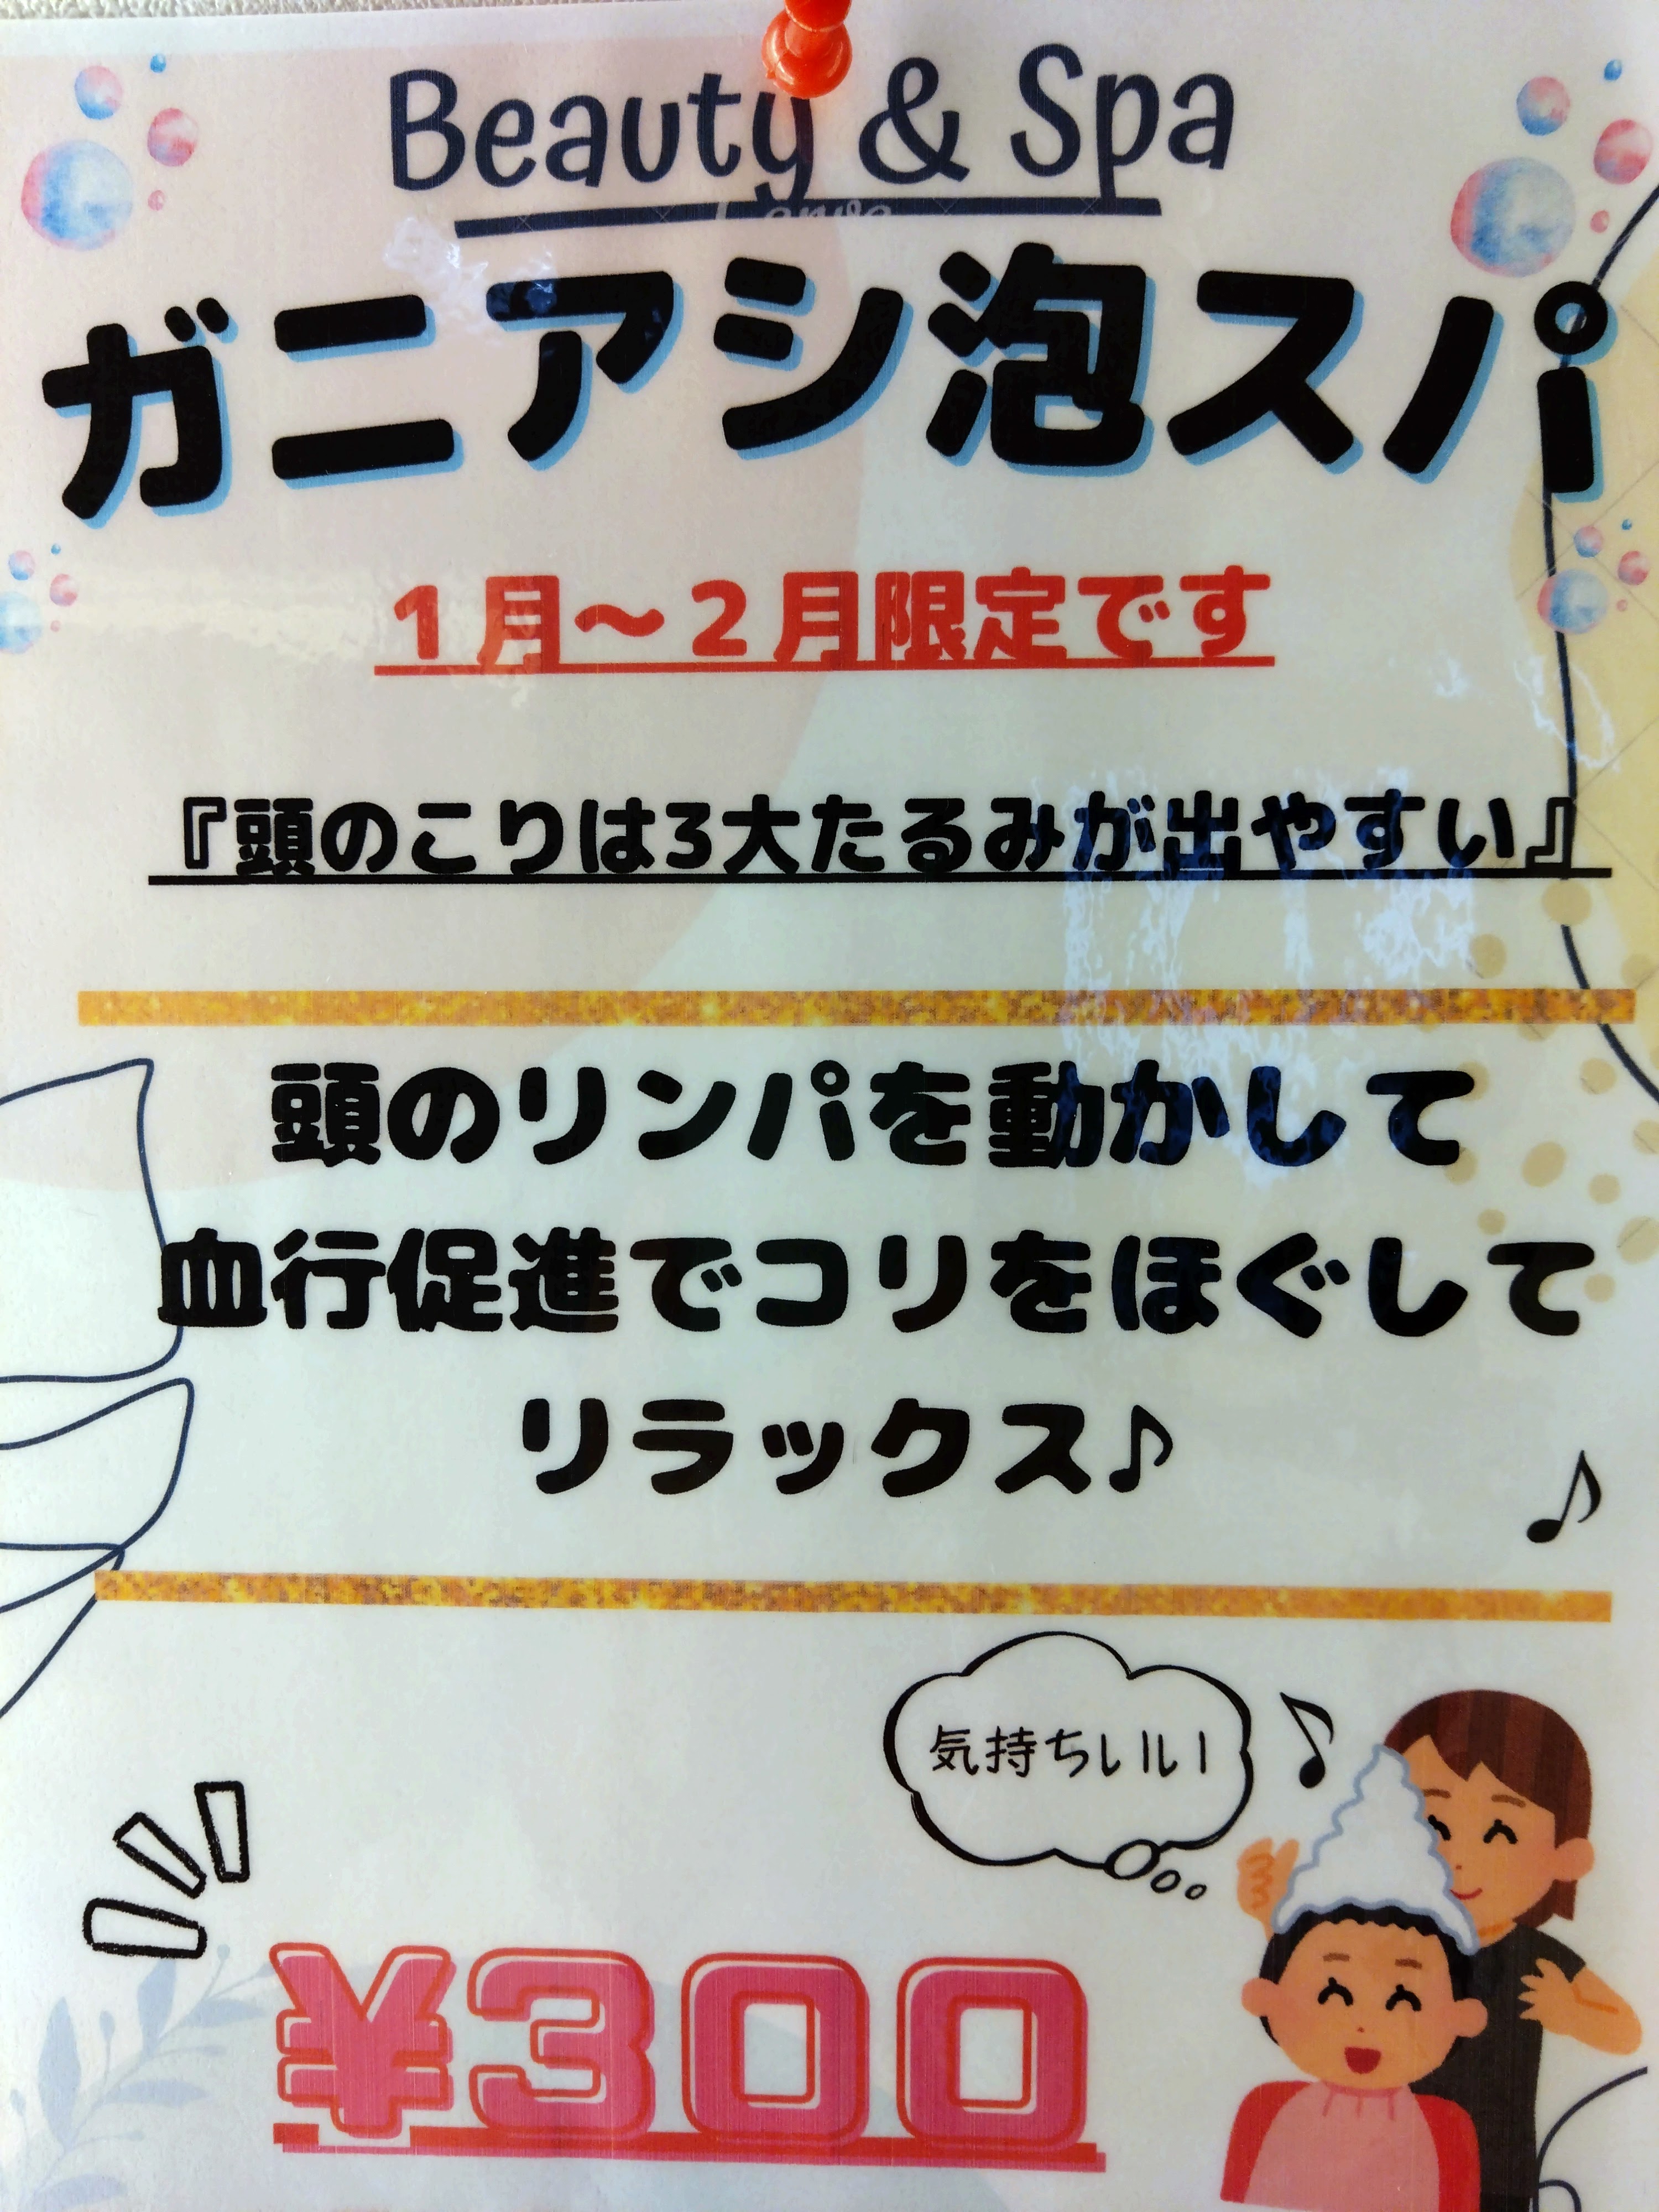 Beauty & Spa
ガニアシ泡スパ
１月～２月限定です
『頭のこりは3大たるみが出やすい』
頭のリンパを動かして
血行促進でコリをほぐして
リラックス♪
気持ちいい
¥300